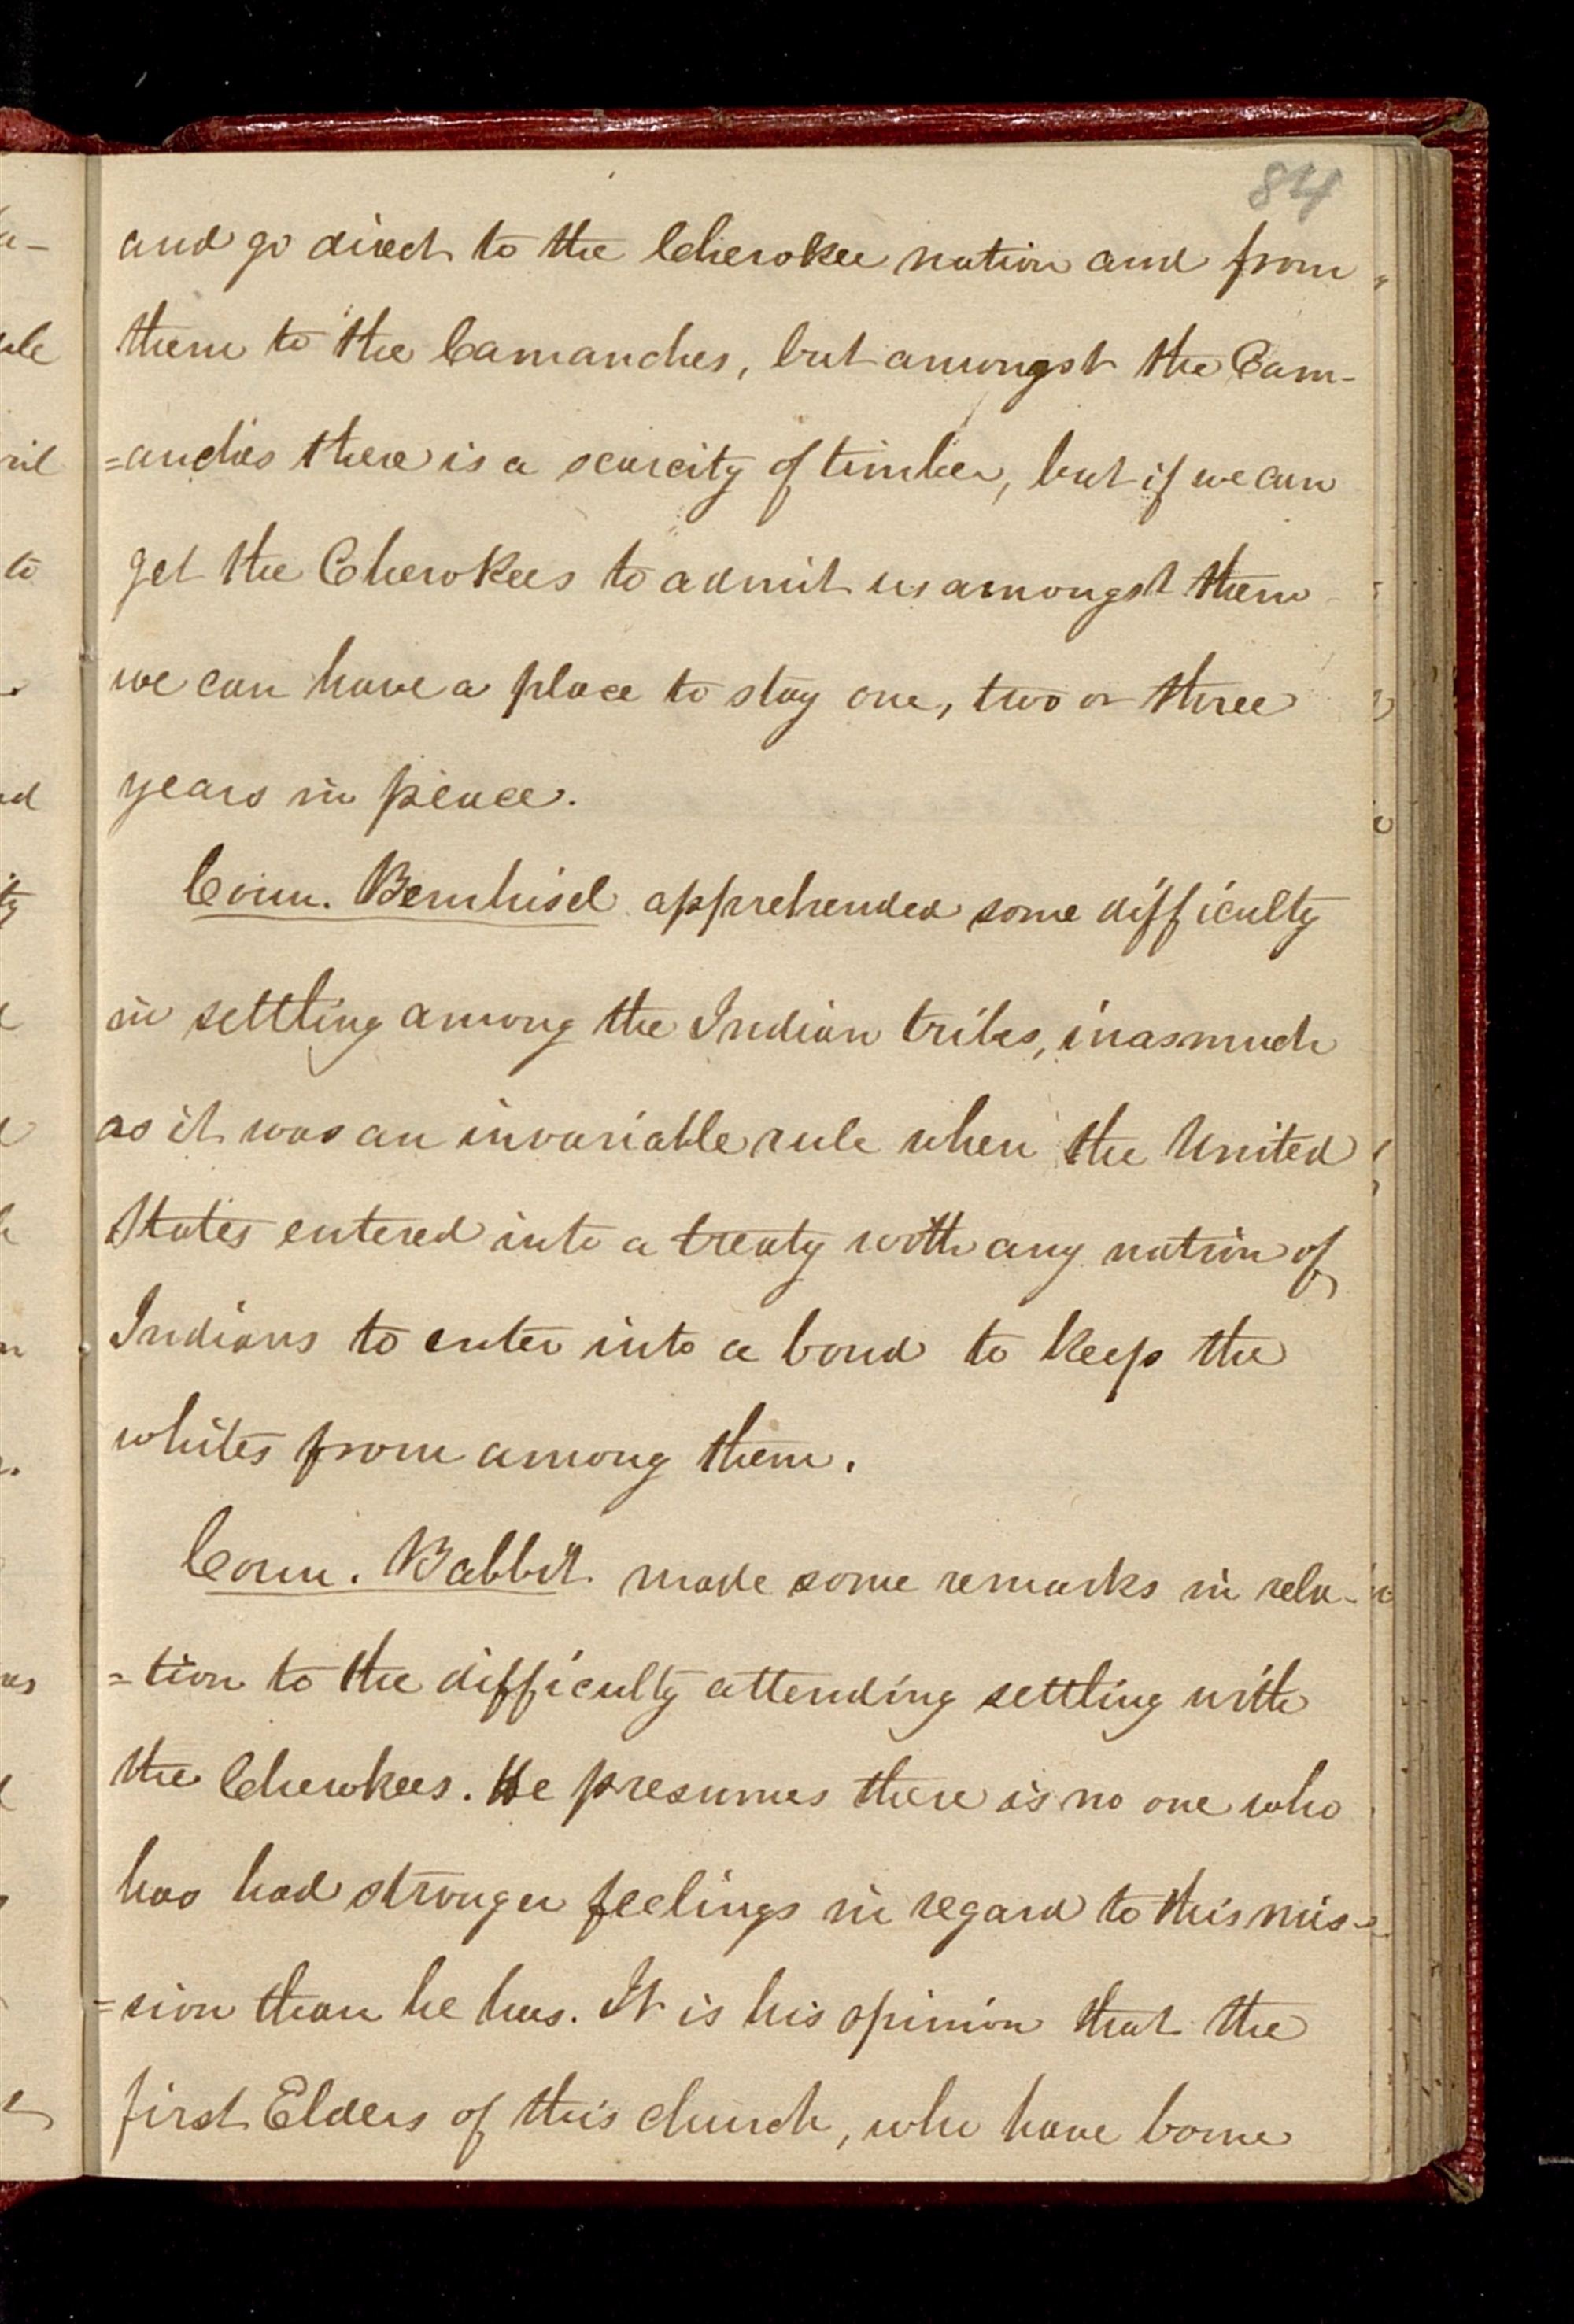 84
and go direct to the Cherokee nation and from
them to the Camanches, but amongst the Cam-
=anches there is a scarcity of timber, but if we can
get the Cherokees to admit us amongst them
we can have a place to stay one, two or three
years in peace.
Coun. Bernhisel apprehended some difficulty
in settling among the Indian tribes, inasmuch
as it was an invariable rule when the United
States entered into a treaty with any nation of
Indians to enter into a bond to keep the
whites from among them.
Coun. Babbit made some remarks in rela-
=tion to the difficulty attending settling with
the Cherokees. He presumes there is no one who
has had stronger feelings in regard to this mis-
=sion than he has. It is his opinion that the
first Elders of this church, who have borne